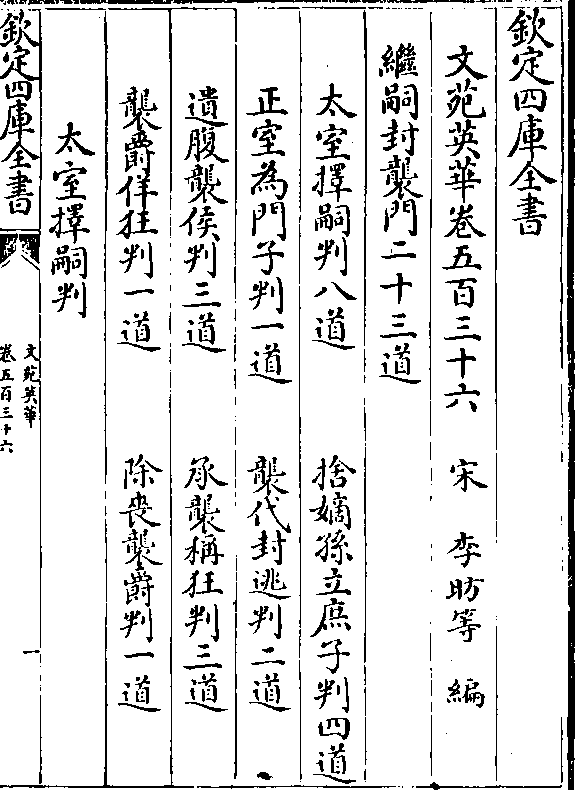 欽定四庫全書
文苑英華卷五百三十六 宋 李昉等 編
繼嗣封襲門二十三道
太室擇嗣判八道 捨嫡孫立庶子判四道
正室為門子判一道 襲代封逃判二道
遺腹襲侯判三道 承襲稱狂判三道
襲爵佯狂判一道 除喪襲爵判一道
太室擇嗣判
欽定四庫全書
文苑英華
卷五百三十六
一